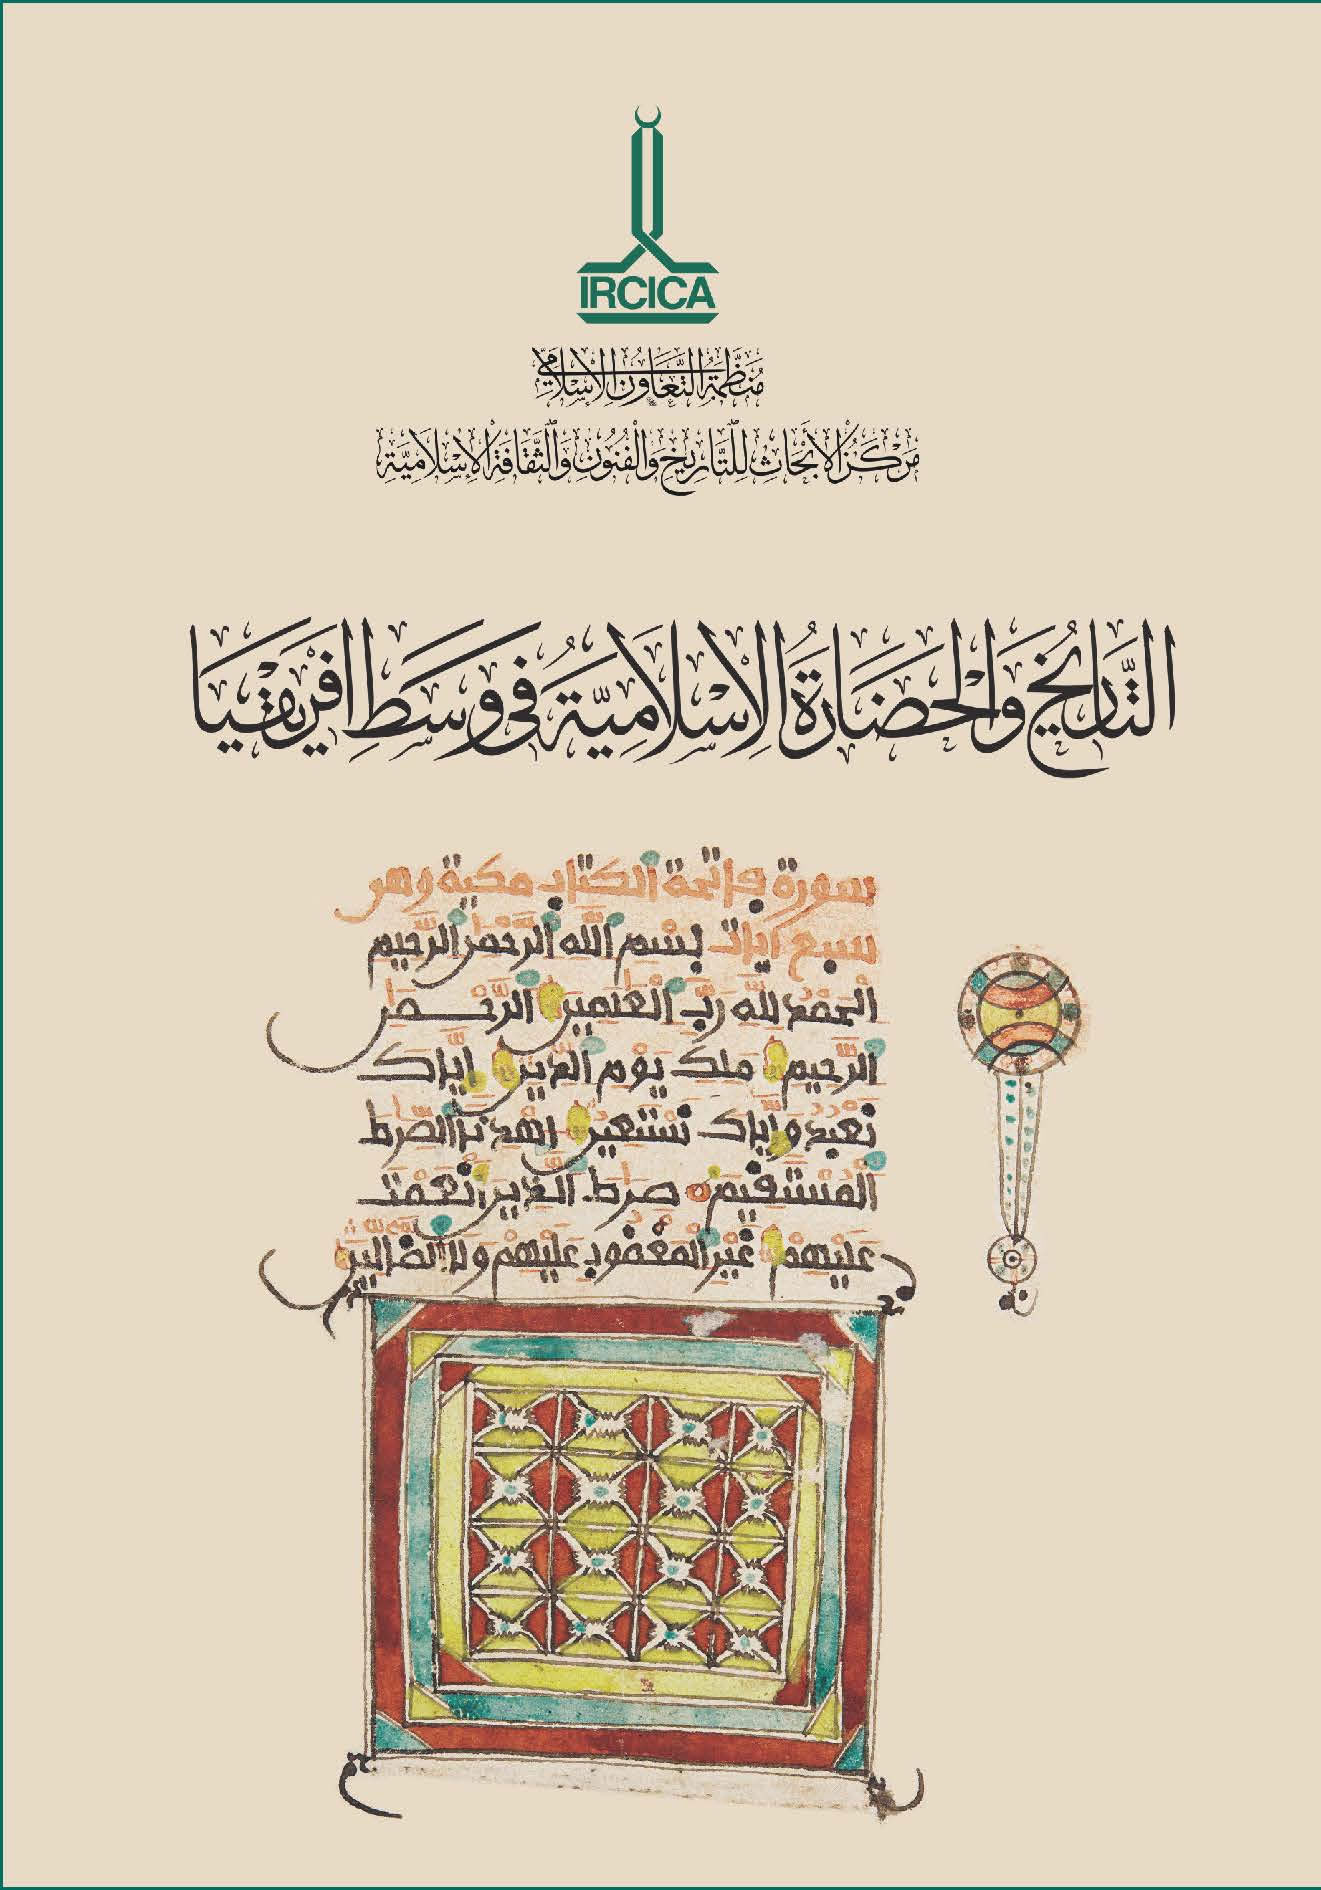 IRCICA
مُنَظَّمَةُ التَّعَاوُنِ الْإِسْلَامِيِّ
مَرْكَزُ الْأَبْحَاثِ لِلتَّارِيخِ وَالْفُنُونِ وَالثَّقَافَةِ الْإِسْلَامِيَّةِ
التَّارِيخُ وَالْحَضَارَةُ الْإِسْلَامِيَّةُ فِي وَسَطِ افْرِيقْيَا
سورة فاتحة الكتاب مكية وهي
سبع آيات بسم الله الرحمن الرحيم
الحمد لله رب العلمين الرحمن
الرحيم ملك يوم الدين إياك
نعبد وإياك نستعين اهدنا الصرط
المستقيم صرط الذين أنعمت
عليهم غير المغضوب عليهم ولا الضالين